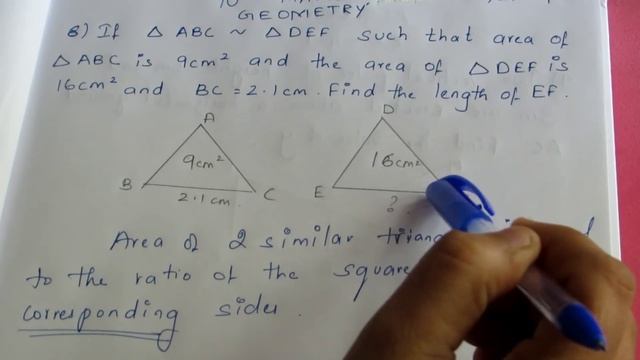 GEOMETRY
8) If △ ABC ~ △ DEF such that area of
△ ABC is 9cm² and the area of △ DEF is
16cm² and BC = 2.1cm. Find the length of EF.
A
D
9cm²
16cm²
B
C
E
2.1cm.
?
Area of 2 similar
to the ratio of the square
corresponding sides.